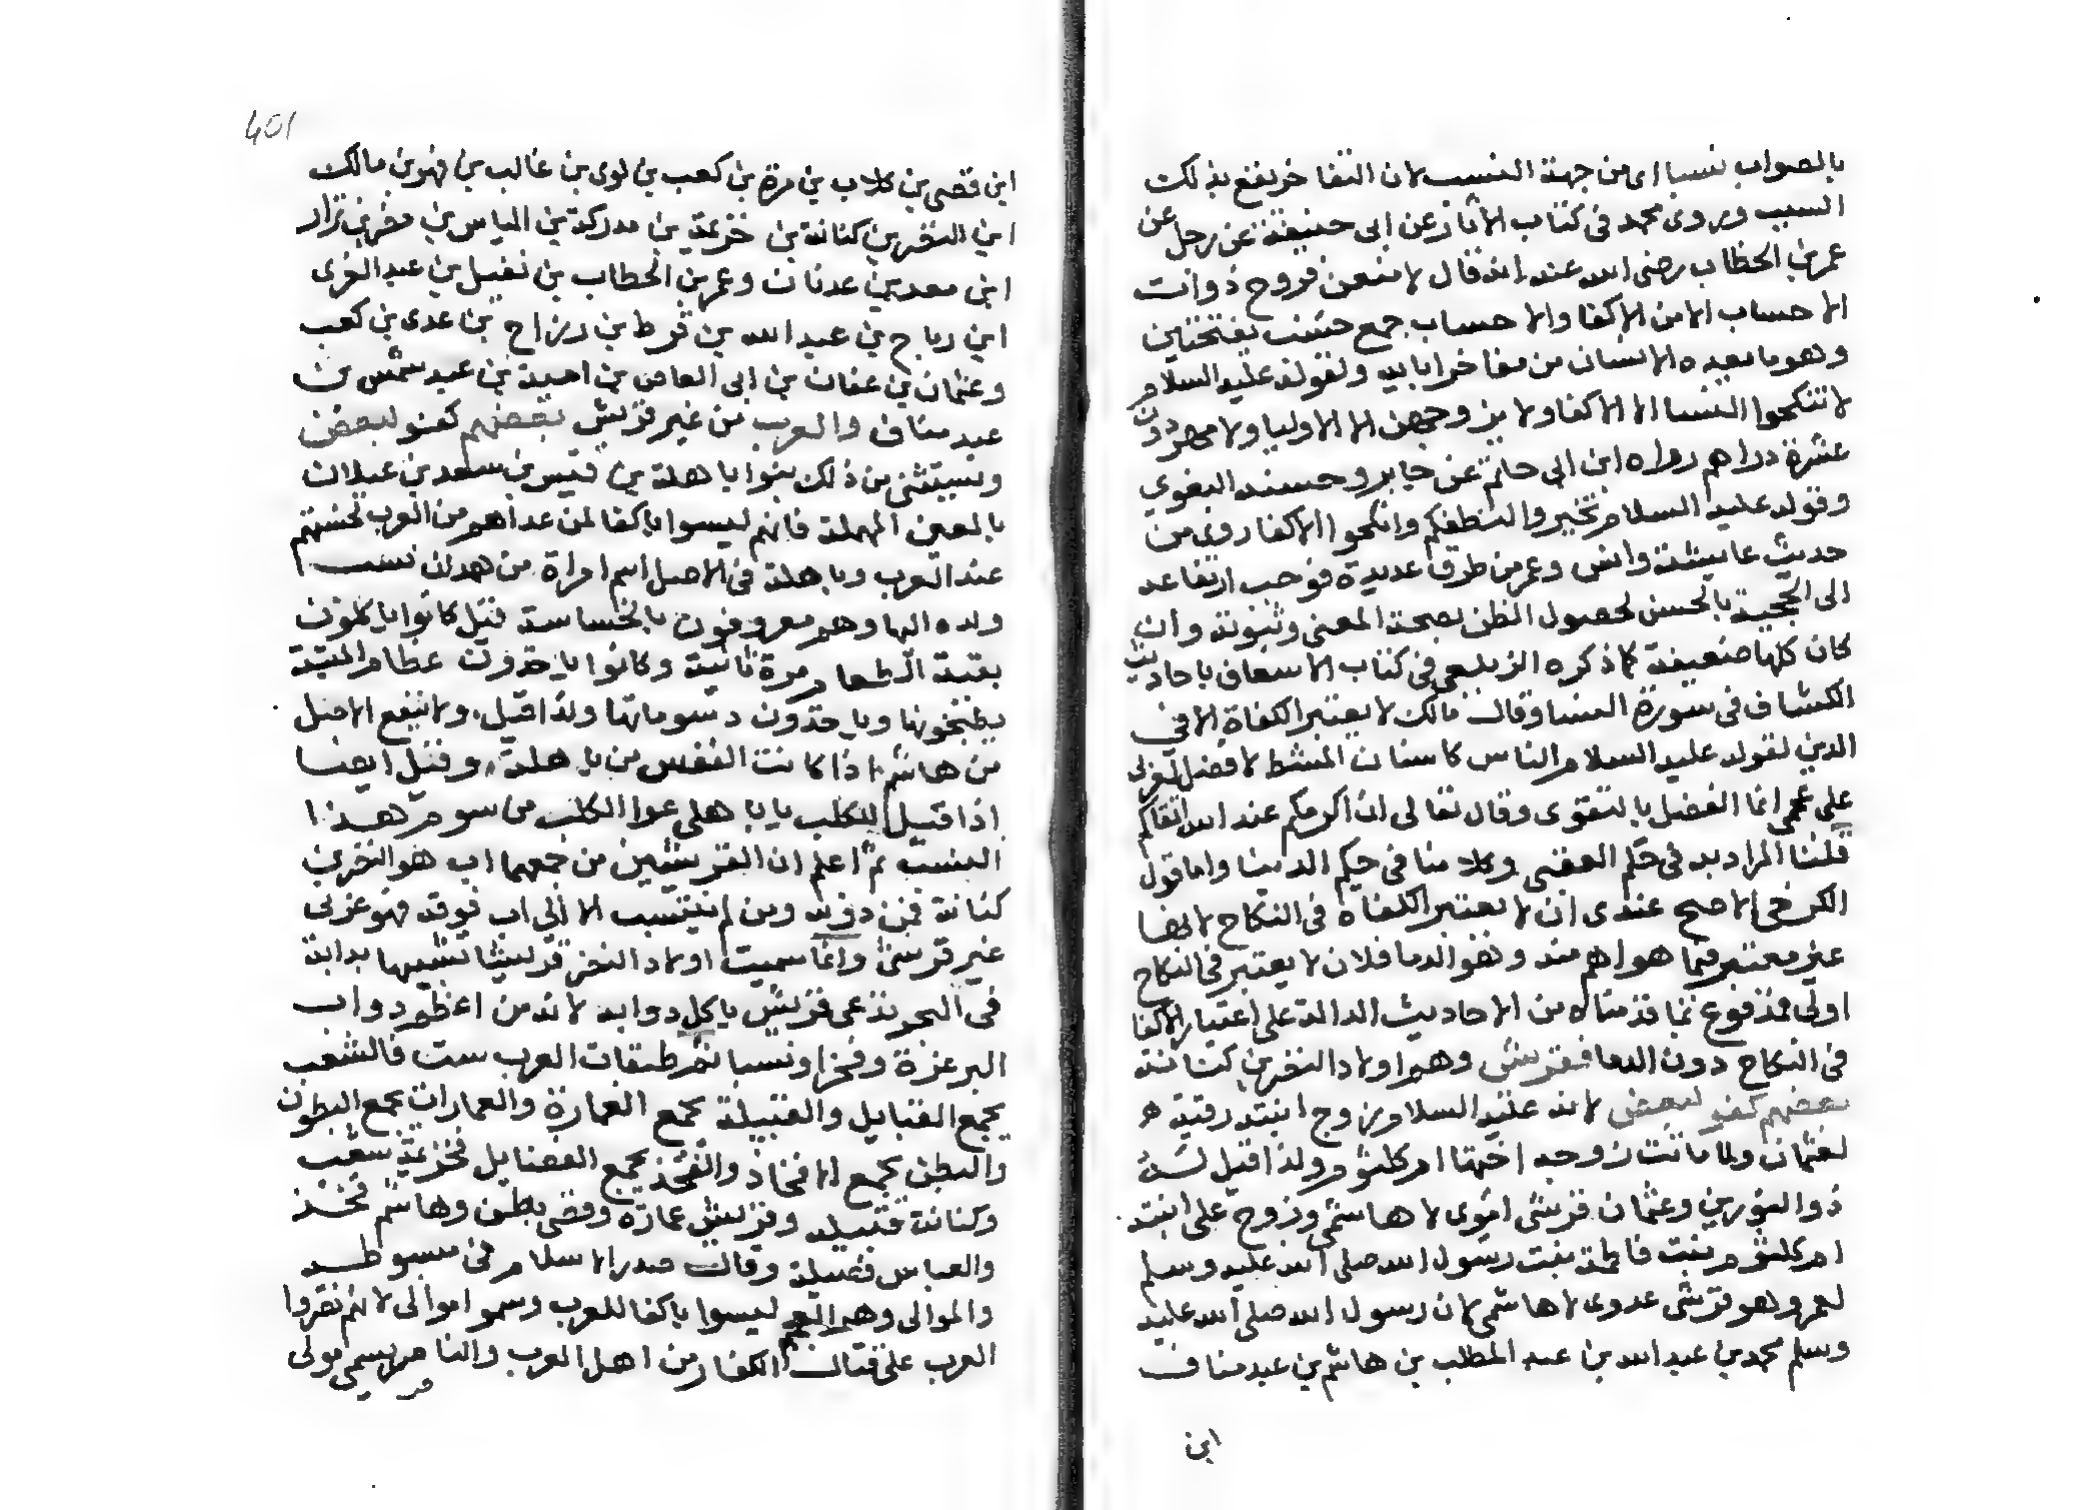 بالصواب نسبا اى من جهة النسب لان التفاخر يقع بذلك
السبب وروى محمد فى كتاب الاثار عن ابى حنيفة عن رجل عن
عمر بن الخطاب رضى الله عنه انه قال لامنعن فروج ذوات
الاحساب الا من الاكفا والاحساب جمع حسب بفتحتين
وهو ما يعده الانسان من مفاخر ابايه ولقوله عليه السلام
لا تنكحوا النسا الا الاكفا ولا يزوجهن الا الاوليا ولا مهر دون
عشرة دراهم رواه ابن ابى حاتم عن جابر وحسنه البغوي
وقوله عليه السلام تخيروا لنطفكم وانكحوا الاكفا روى من
حديث عايشة وانس وعمر من طرق عديدة فوجب ارتفاعه
الى الحجية بالحسن لحصول الظن بصحة المعنى وثبوته وان
كان كلها ضعيفة كما ذكره الزيلعى فى كتاب الاسعاف باحاديث
الكشاف فى سورة النسا وقال مالك لا يعتبر الكفاة الا فى
الدين لقوله عليه السلام الناس كاسنان المشط لا فضل لعربى
على عجمى انما الفضل بالتقوى وقال تعالى ان اكرمكم عند الله اتقاكم
قلنا المراد به فى حكم العقبى وكلامنا فى حكم الدنيا واما قول
الكرخى الاصح عندى ان لا يعتبر الكفاة فى النكاح لانها
غير معتبر فيما هو اهم منه وهو الدما فلان لا يعتبر فى النكاح
اولى فمدفوع بما قدمناه من الاحاديث الدالة على اعتبار الاكفا
فى النكاح دون الدما فقريش وهم اولاد النضر بن كنانة
بعضهم كفو لبعض لانه عليه السلام زوج ابنته رقية ه
لعثمان ولما ماتت زوجه اختها ام كلثوم ولذا قيل له
ذو النورين وعثمان قرشى اموى لا هاشمى وزوج على ابنته
ام كلثوم بنت فاطمة بنت رسول الله صلى الله عليه وسلم
لعمر وهو قرشى عدوى لا هاشمى لان رسول الله صلى الله عليه
وسلم محمد بن عبد الله بن عبد المطلب بن هاشم بن عبد مناف
ابن
401
ابن قصى بن كلاب بن مرة بن كعب بن لوى بن غالب بن فهر بن مالك
ابن النضر بن كنانة بن خزيمة بن مدركة بن الياس بن مضر بن نزار
ابن معد بن عدنان وعمر بن الخطاب بن نفيل بن عبد العزى
ابن رباح بن عبد الله بن قرط بن رزاح بن عدى بن كعب
وعثمان بن عفان بن ابى العاص بن امية بن عبد شمس بن
عبد مناف والعرب من غير قريش بعضهم كفو لبعض
ويستثنى من ذلك بنوا باهلة بن قيس بن سعد بن عيلان
بالعين المهملة فانهم ليسوا باكفا لمن عداهم من العرب لخستهم
عند العرب وباهلة فى الاصل اسم امراة من همدان نسب
ولده اليها وهم معروفون بالخساسة قيل كانوا ياكلون
بقية الطعام مرة ثانية وكانوا ياخذون عظام الميتة
يطبخونها وياخذون دسوماتها ولذا قيل، ولا ينفع الاصل
من هاشم اذا كانت النفس من باهلة، وقيل ايضا
اذا قيل للكلب يا باهلى عوا الكلب من سوم هذا
النسب ثم اعلم ان القرشيين من جمعهما اب هو النضر بن
كنانة فمن دونه ومن لم ينتسب الا الى اب فوقه فهو عربى
غير قرشى وانما سميت اولاد النضر قريشا تشبيها بدابة
فى البحر تدعى قريش ياكل دوابه لانه من اعظم دواب
البر عزة وفخرا ونسبا ثم طبقات العرب ست فالشعب
يجمع القبايل والقبيلة يجمع العمارة والعمارات يجمع البطون
والبطن يجمع الافخاذ والفخذ يجمع الفصايل فخزيمة شعب
وكنانة قبيلة وقريش عمارة وقصى بطن وهاشم فخذ
والعباس فصيلة وقال صدر الاسلام فى مبسوطه
والموالى وهم العجم ليسوا باكفا للعرب وسموا موالى لانهم نصروا
العرب على قتال الكفار من اهل العرب والناصر يسمى مولى